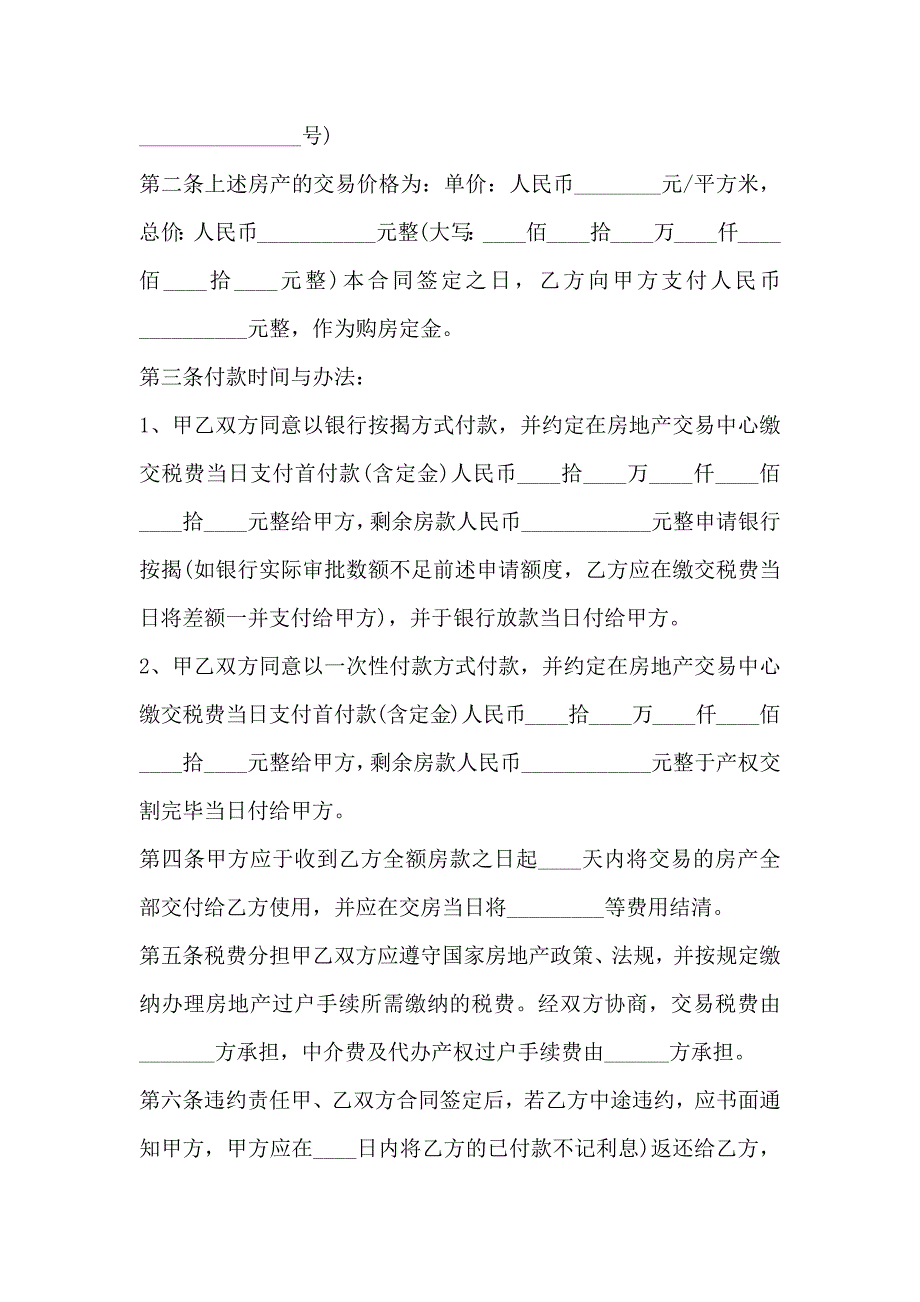 _______________号)
第二条上述房产的交易价格为：单价：人民币________元/平方米，
总价：人民币___________元整(大写：____佰____拾____万____仟____
佰____拾____元整)本合同签定之日，乙方向甲方支付人民币
__________元整，作为购房定金。
第三条付款时间与办法：
1、甲乙双方同意以银行按揭方式付款，并约定在房地产交易中心缴
交税费当日支付首付款(含定金)人民币____拾____万____仟____佰
____拾____元整给甲方，剩余房款人民币____________元整申请银行
按揭(如银行实际审批数额不足前述申请额度，乙方应在缴交税费当
日将差额一并支付给甲方)，并于银行放款当日付给甲方。
2、甲乙双方同意以一次性付款方式付款，并约定在房地产交易中心
缴交税费当日支付首付款(含定金)人民币____拾____万____仟____佰
____拾____元整给甲方，剩余房款人民币____________元整于产权交
割完毕当日付给甲方。
第四条甲方应于收到乙方全额房款之日起____天内将交易的房产全
部交付给乙方使用，并应在交房当日将_________等费用结清。
第五条税费分担甲乙双方应遵守国家房地产政策、法规，并按规定缴
纳办理房地产过户手续所需缴纳的税费。经双方协商，交易税费由
_______方承担，中介费及代办产权过户手续费由______方承担。
第六条违约责任甲、乙双方合同签定后，若乙方中途违约，应书面通
知甲方，甲方应在____日内将乙方的已付款不记利息)返还给乙方，